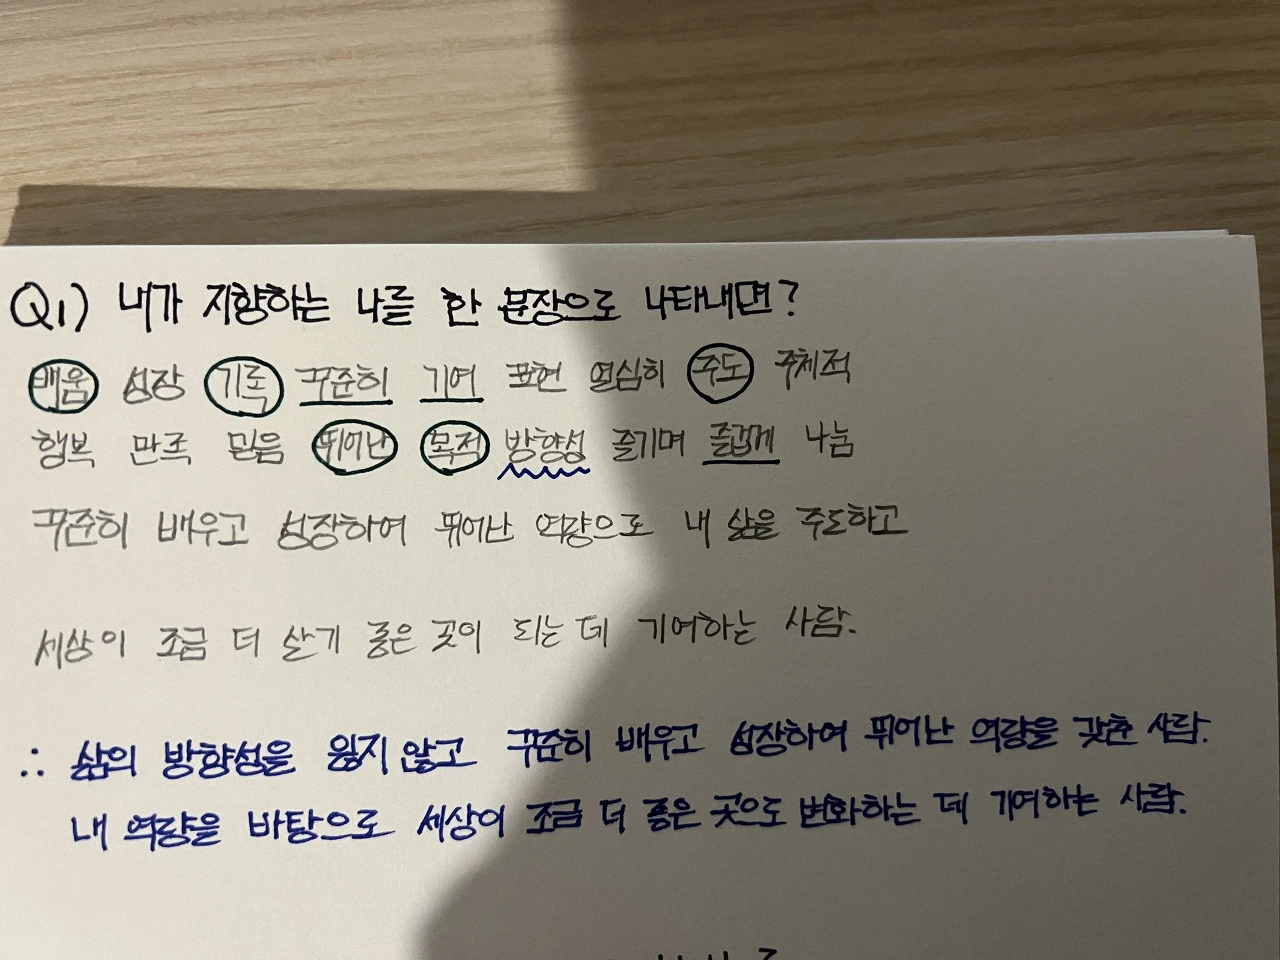 Q1) 내가 지향하는 나를 한 문장으로 나타내면?
배움 성장 기록 꾸준히 기여 표현 열심히 주도 주체적
행복 만족 믿음 뛰어난 목적 방향성 즐기며 즐겁게 나눔
꾸준히 배우고 성장하여 뛰어난 역량으로 내 삶을 주도하고
세상이 조금 더 살기 좋은 곳이 되는 데 기여하는 사람.
∴ 삶의 방향성을 잃지 않고 꾸준히 배우고 성장하여 뛰어난 역량을 갖춘 사람.
내 역량을 바탕으로 세상이 조금 더 좋은 곳으로 변화하는 데 기여하는 사람.